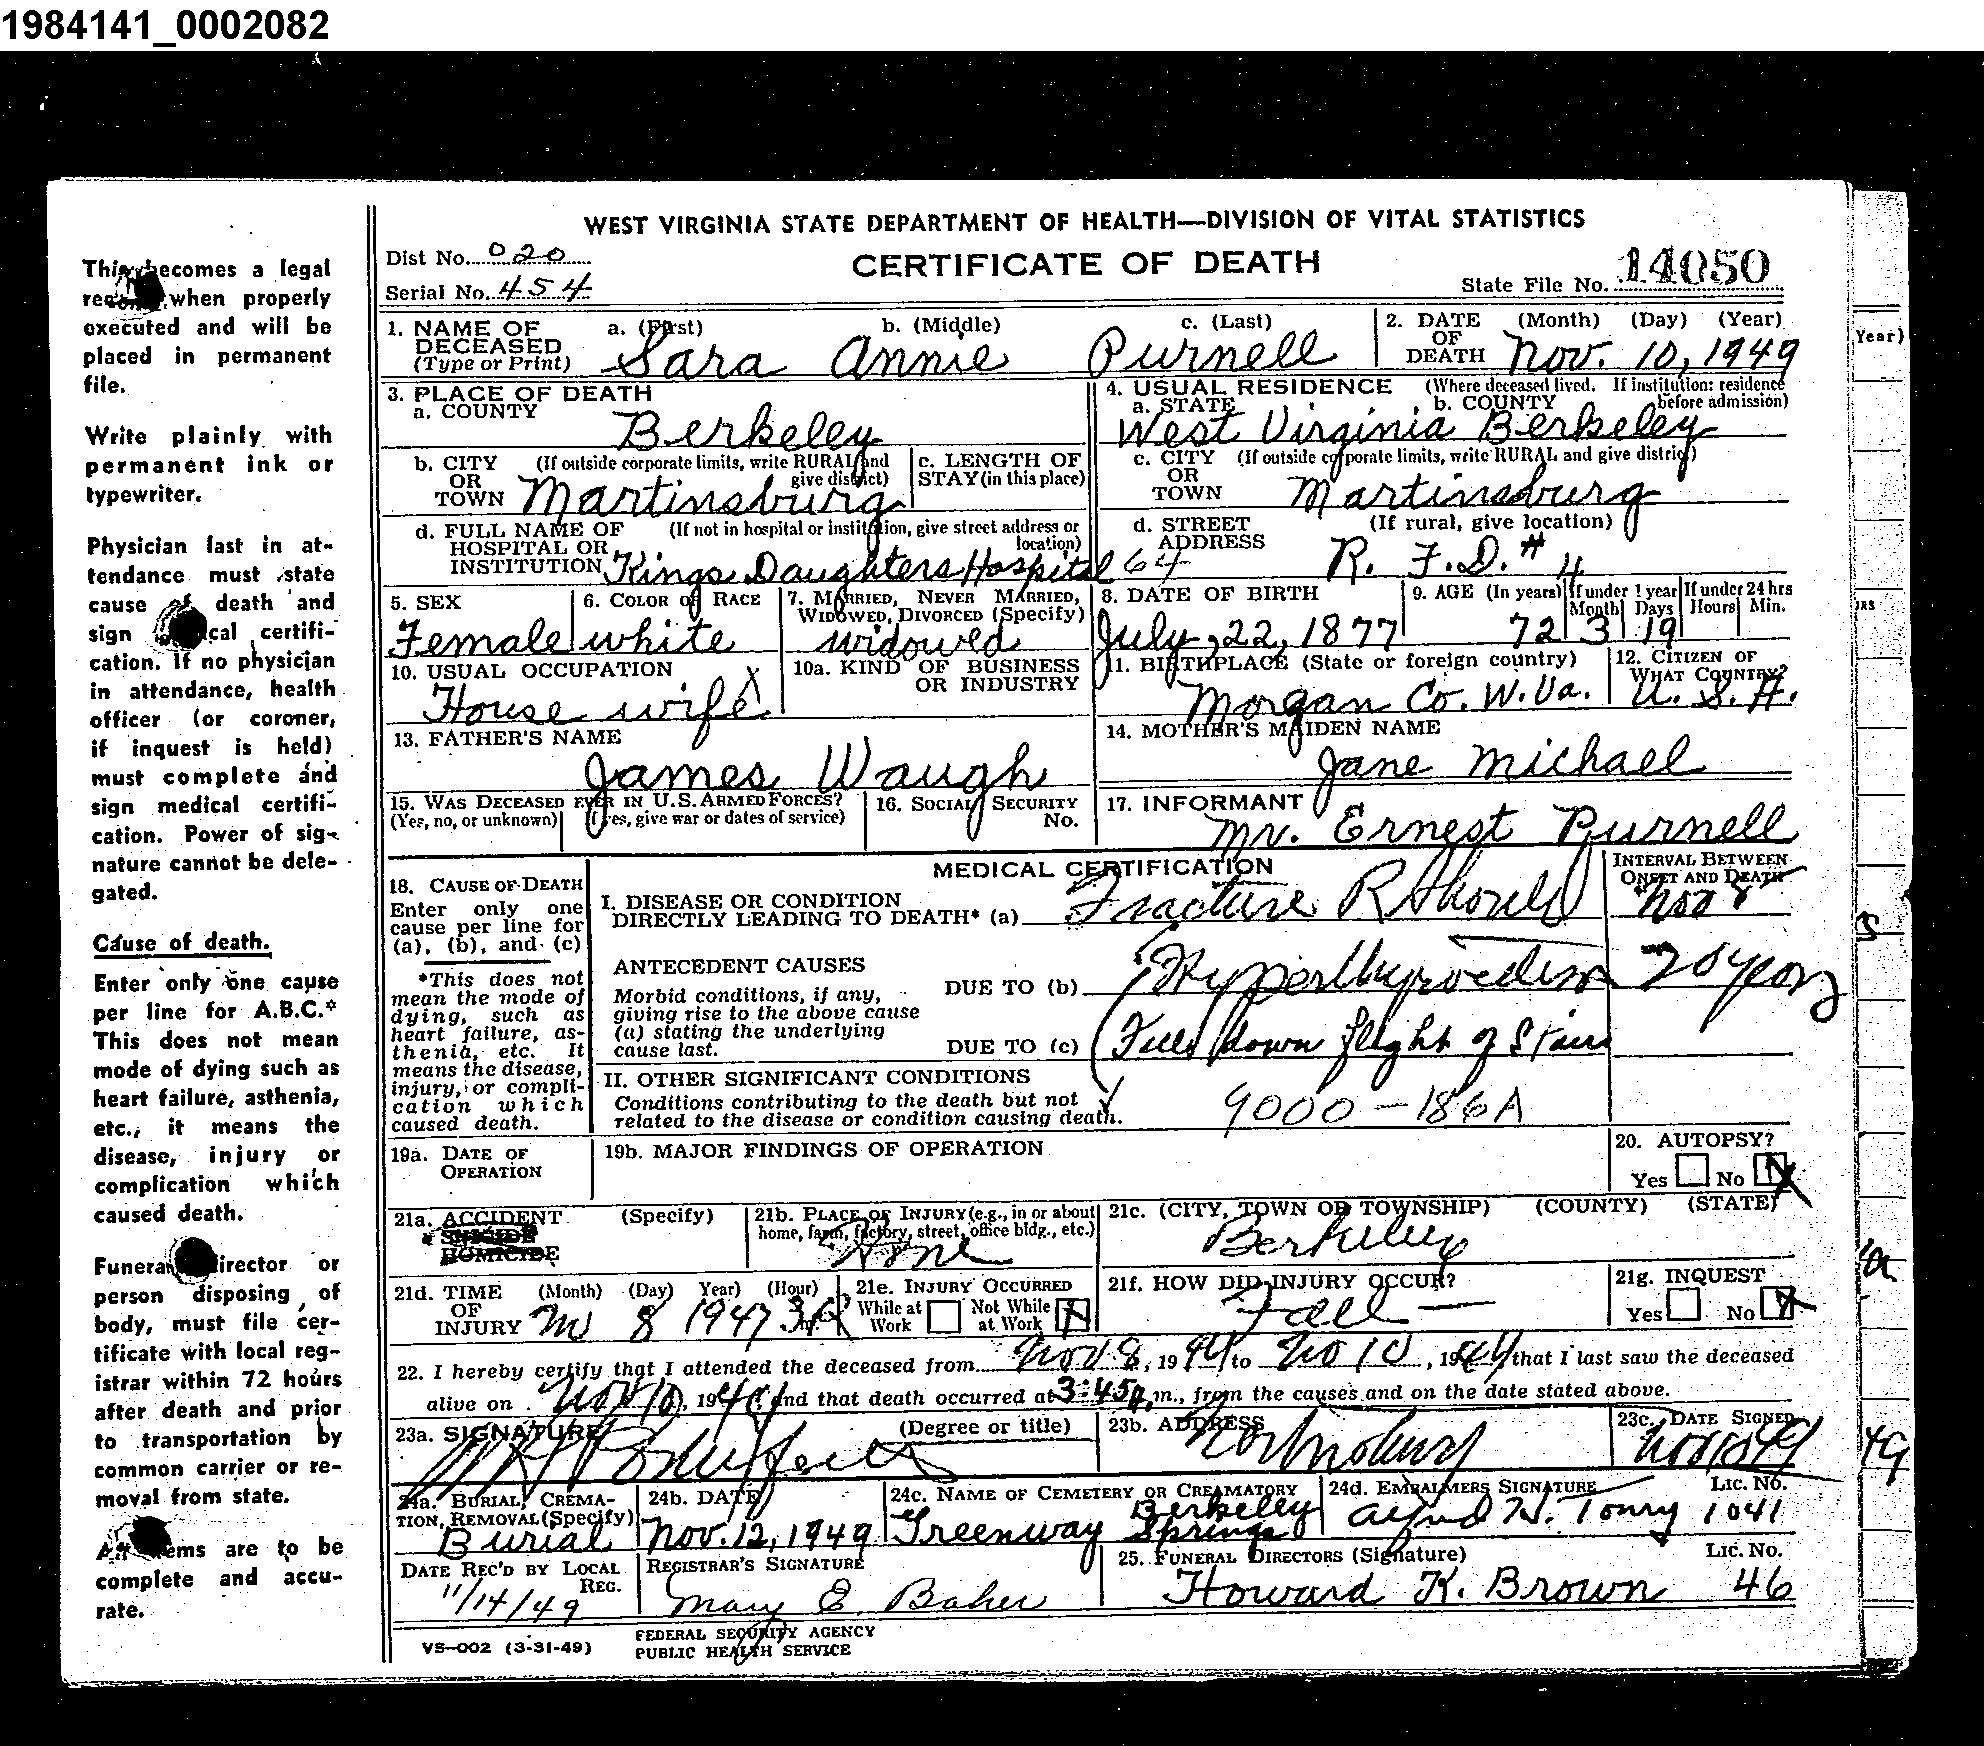 1984141_0002082
WEST VIRGINIA STATE DEPARTMENT OF HEALTH—DIVISION OF VITAL STATISTICS
Dist No. 020
CERTIFICATE OF DEATH
Serial No. 454
State File No. 14050
This becomes a legal
when properly
executed and will be
placed in permanent
file.
Write plainly with
permanent ink or
typewriter.
Physician last in at-
tendance must state
cause of death and
sign cal certifi-
cation. If no physician
in attendance, health
officer (or coroner,
if inquest is held)
must complete and
sign medical certifi-
cation. Power of sig-
nature cannot be dele-
gated.
Cause of death.
Enter only one cause
per line for A.B.C.*
This does not mean
mode of dying such as
heart failure, asthenia,
etc., it means the
disease, injury or
complication which
caused death.
Funeral director or
person disposing of
body, must file cer-
tificate with local reg-
istrar within 72 hours
after death and prior
to transportation by
common carrier or re-
moval from state.
All items are to be
complete and accu-
rate.
1. NAME OF DECEASED (Type or Print) a. (First) b. (Middle) c. (Last)
Sara Annie Purnell
2. DATE OF DEATH (Month) (Day) (Year)
Nov. 10, 1949
3. PLACE OF DEATH
a. COUNTY
Berkeley
4. USUAL RESIDENCE (Where deceased lived. If institution: residence before admission)
a. STATE b. COUNTY
West Virginia Berkeley
b. CITY OR TOWN (If outside corporate limits, write RURAL and give district)
Martinsburg
c. LENGTH OF STAY (in this place)
c. CITY OR TOWN (If outside corporate limits, write RURAL and give district)
Martinsburg
d. FULL NAME OF HOSPITAL OR INSTITUTION (If not in hospital or institution, give street address or location)
Kings Daughters Hospital 64
d. STREET ADDRESS (If rural, give location)
R. F.D. # 4
5. SEX
Female
6. COLOR OR RACE
white
7. MARRIED, NEVER MARRIED, WIDOWED, DIVORCED (Specify)
widowed
8. DATE OF BIRTH
July, 22, 1877
9. AGE (In years) If under 1 year Month Days If under 24 hrs Hours Min.
72 3 19
10. USUAL OCCUPATION
House wife
10a. KIND OF BUSINESS OR INDUSTRY
11. BIRTHPLACE (State or foreign country)
Morgan Co. W. Va.
12. CITIZEN OF WHAT COUNTRY?
U. S. A.
13. FATHER'S NAME
James Waugh
14. MOTHER'S MAIDEN NAME
Jane Michael
15. WAS DECEASED EVER IN U.S. ARMED FORCES?
(Yes, no, or unknown) (If yes, give war or dates of service)
16. SOCIAL SECURITY No.
17. INFORMANT
Mr. Ernest Purnell
MEDICAL CERTIFICATION
INTERVAL BETWEEN ONSET AND DEATH
18. CAUSE OF DEATH
Enter only one
cause per line for
(a), (b), and (c)
*This does not
mean the mode of
dying, such as
heart failure, as-
thenia, etc. It
means the disease,
injury, or compli-
cation which
caused death.
I. DISEASE OR CONDITION
DIRECTLY LEADING TO DEATH* (a) Fracture R Should Nov 8
ANTECEDENT CAUSES
Morbid conditions, if any,
giving rise to the above cause
(a) stating the underlying
cause last.
DUE TO (b) 20 years
DUE TO (c) Fell down flight of Stairs
II. OTHER SIGNIFICANT CONDITIONS
Conditions contributing to the death but not
related to the disease or condition causing death.
9000 - 186A
19a. DATE OF OPERATION
19b. MAJOR FINDINGS OF OPERATION
20. AUTOPSY?
Yes No X
21a. ACCIDENT (Specify)
SUICIDE
HOMICIDE
21b. PLACE OF INJURY (e.g., in or about home, farm, factory, street, office bldg., etc.)
Home
21c. (CITY, TOWN OR TOWNSHIP) (COUNTY) (STATE)
Berkeley
21d. TIME OF INJURY (Month) (Day) Year) (Hour)
8
21e. INJURY OCCURRED
While at Work Not While at Work X
21f. HOW DID INJURY OCCUR?
Fall
21g. INQUEST
Yes No X
22. I hereby certify that I attended the deceased from Nov 8, 19 to 10, 19 that I last saw the deceased
alive on Nov 10, 19 and that death occurred at 3:45 m., from the causes and on the date stated above.
23a. SIGNATURE (Degree or title)
23b. ADDRESS
Martinsburg
23c. DATE SIGNED
Nov 10 49
24a. BURIAL, CREMA-
TION, REMOVAL (Specify)
Burial
24b. DATE
Nov. 12, 1949
24c. NAME OF CEMETERY OR CREAMATORY
Greenway Berkeley Springs
24d. EMBALMERS SIGNATURE LIC. NO.
H. Tonry 1041
DATE REC'D BY LOCAL REG.
11/14/49
REGISTRAR'S SIGNATURE
Mary E. Baker
25. FUNERAL DIRECTORS (Signature) LIC. NO.
Howard K. Brown 46
VS-002 (3-31-49)
FEDERAL SECURITY AGENCY
PUBLIC HEALTH SERVICE
Year)